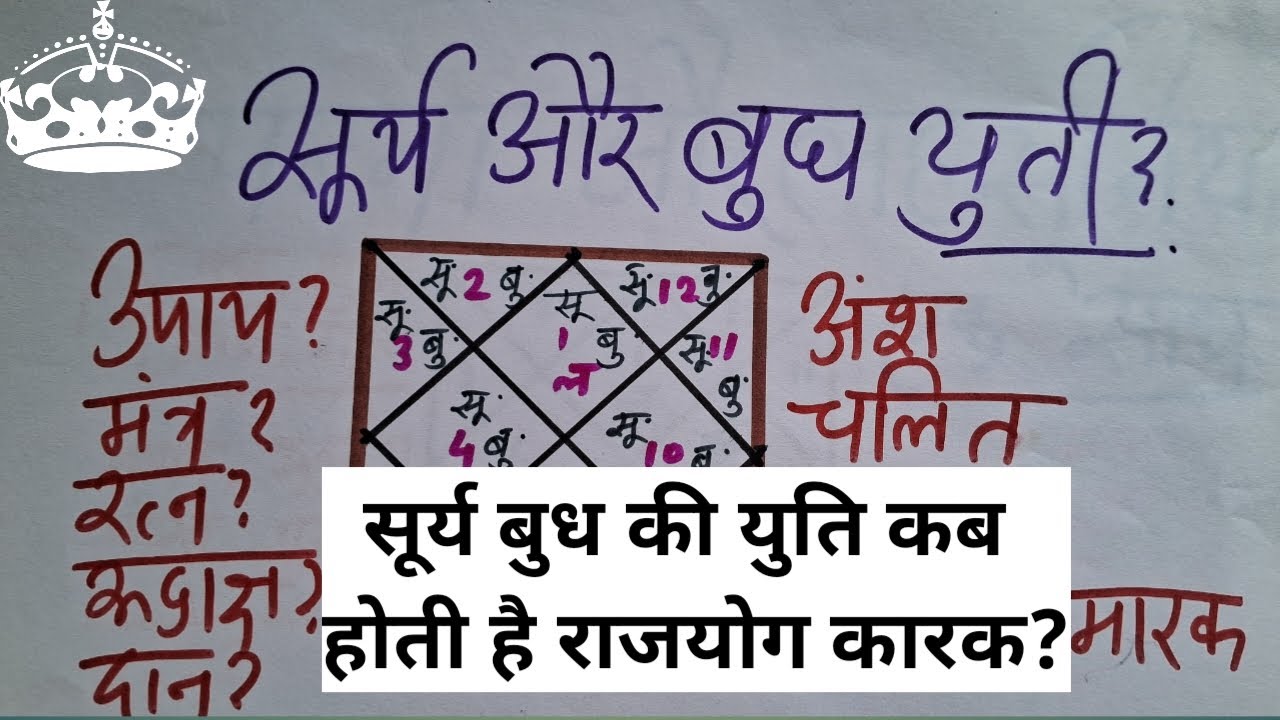 सूर्य और बुध युती?
उपाय?
मंत्र?
रत्न?
रूद्राक्ष?
दान?
सू. 2 बु.
सू. 12 बु.
सू. 3 बु.
सू 1 बु
ल
सू. 11 बु.
सू. 4 बु.
सू. 10 बु.
अंश
चलित
मारक
सूर्य बुध की युति कब
होती है राजयोग कारक?